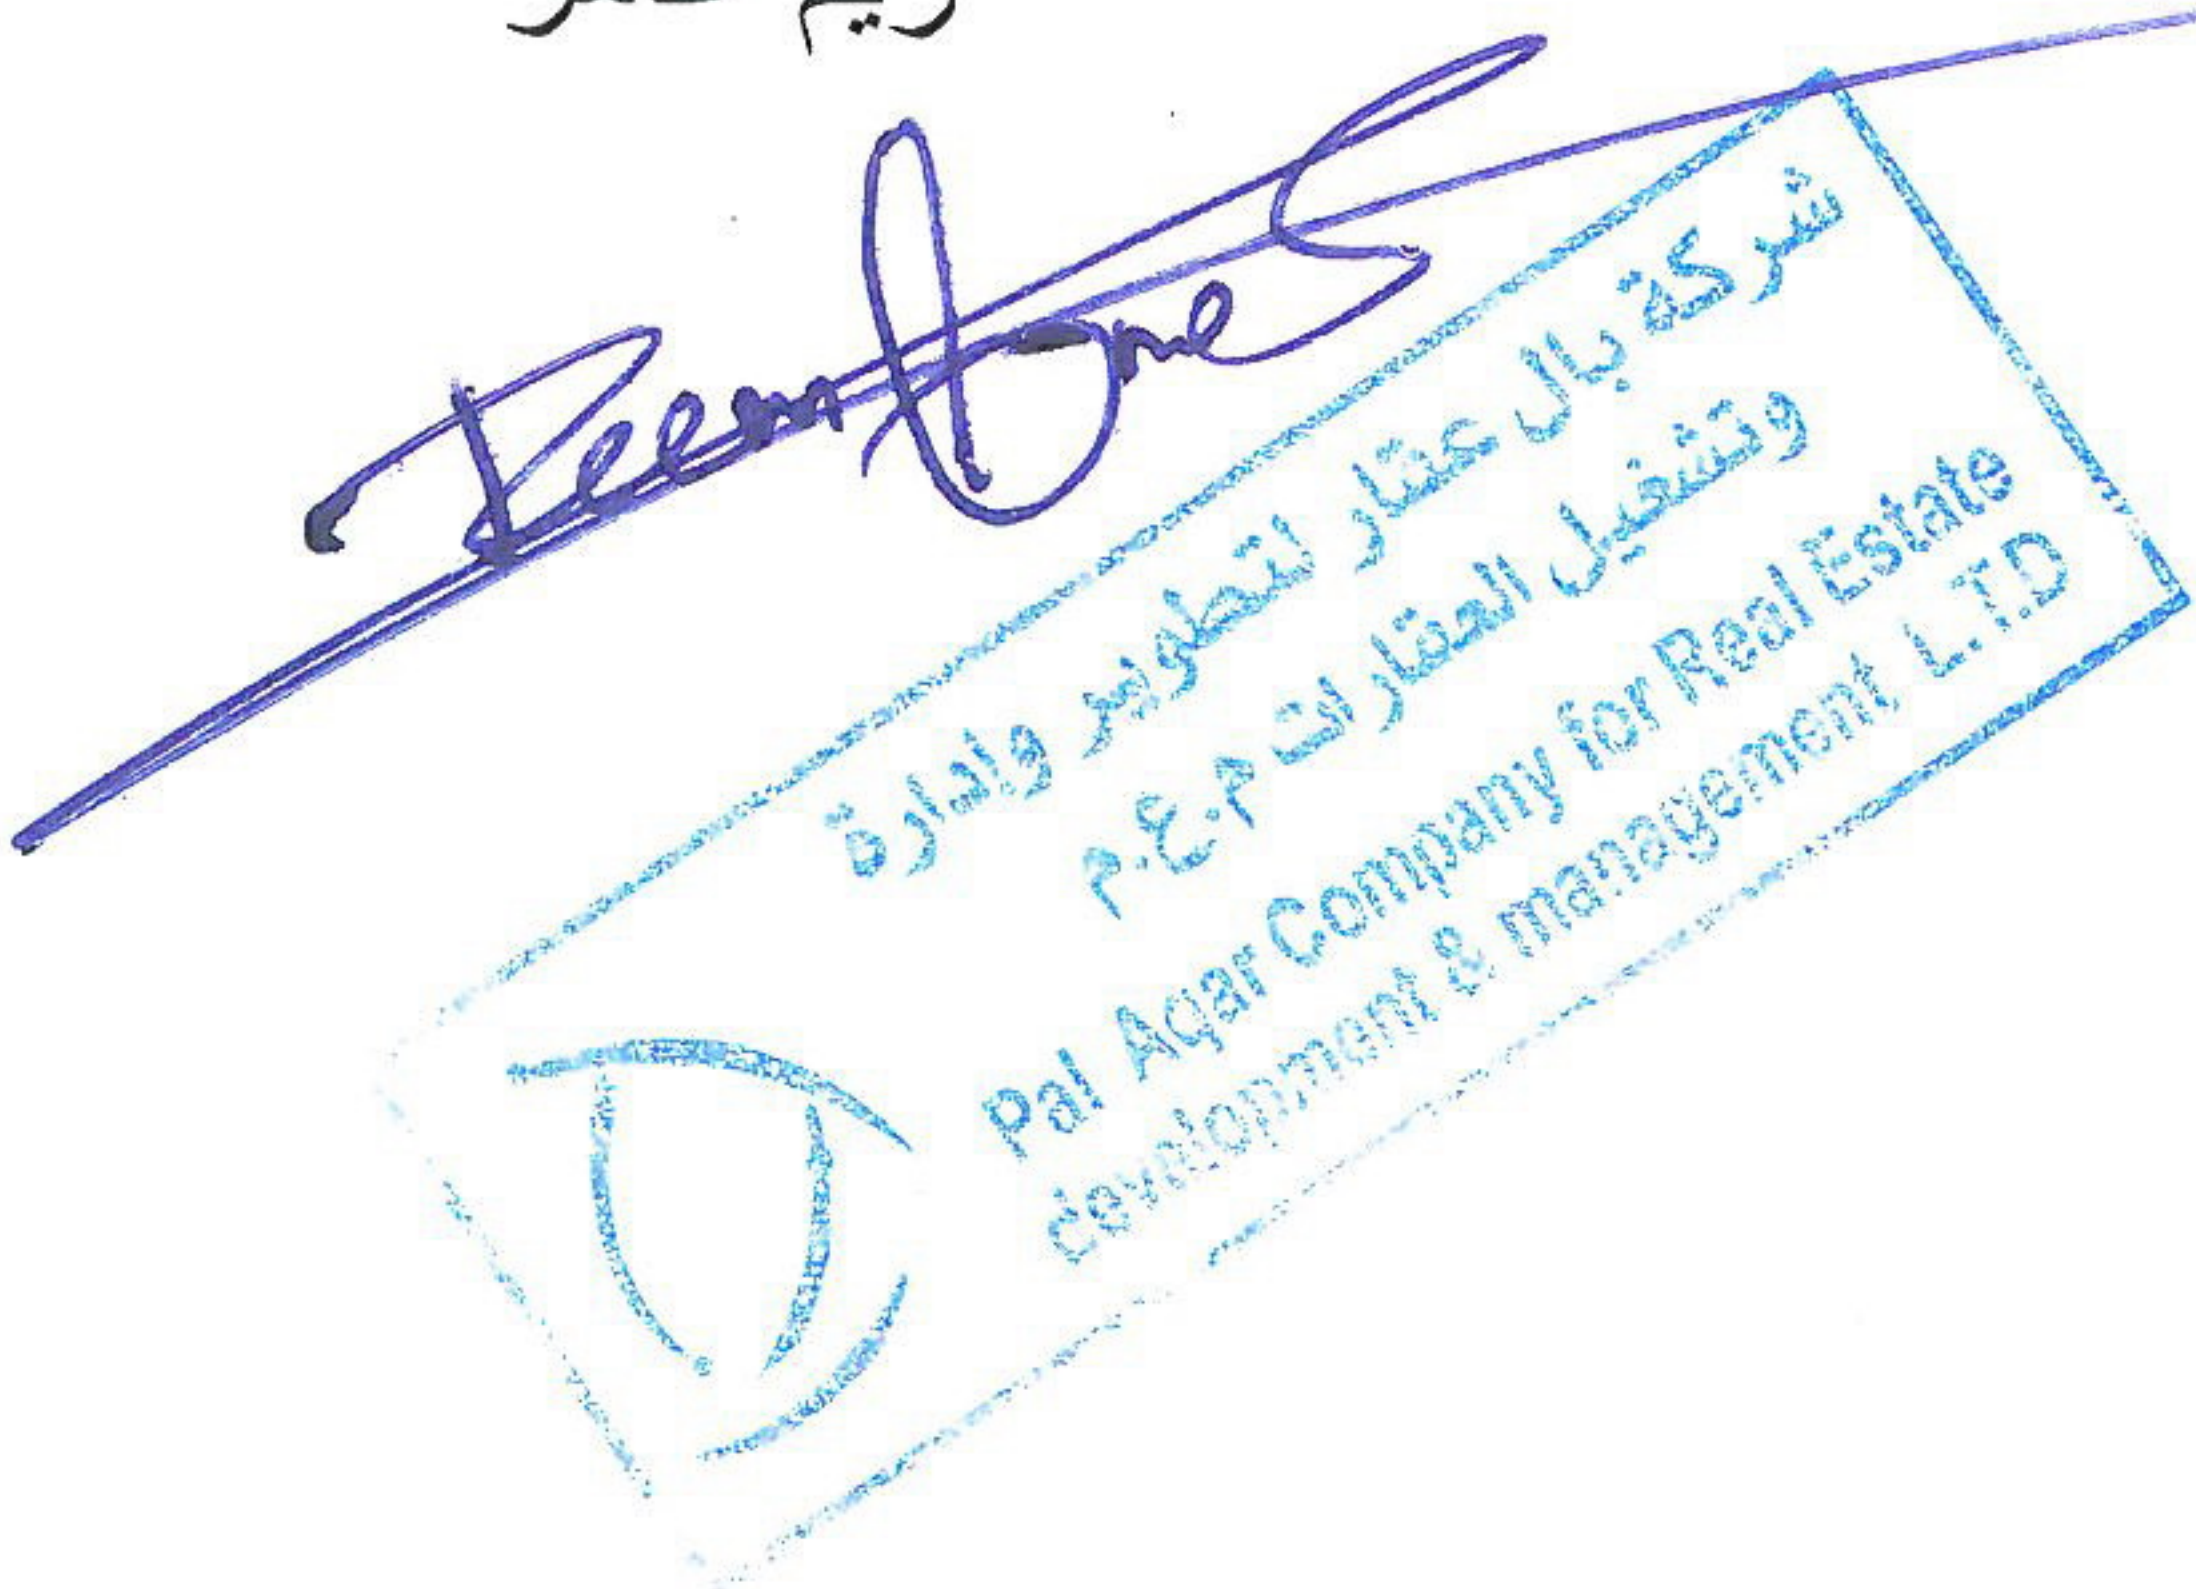 ريم
Reem
شركة بال عقار لتطوير وإدارة
وتشغيل العقارات م.ع.م
Pal Aqar Company for Real Estate
development & management L.T.D